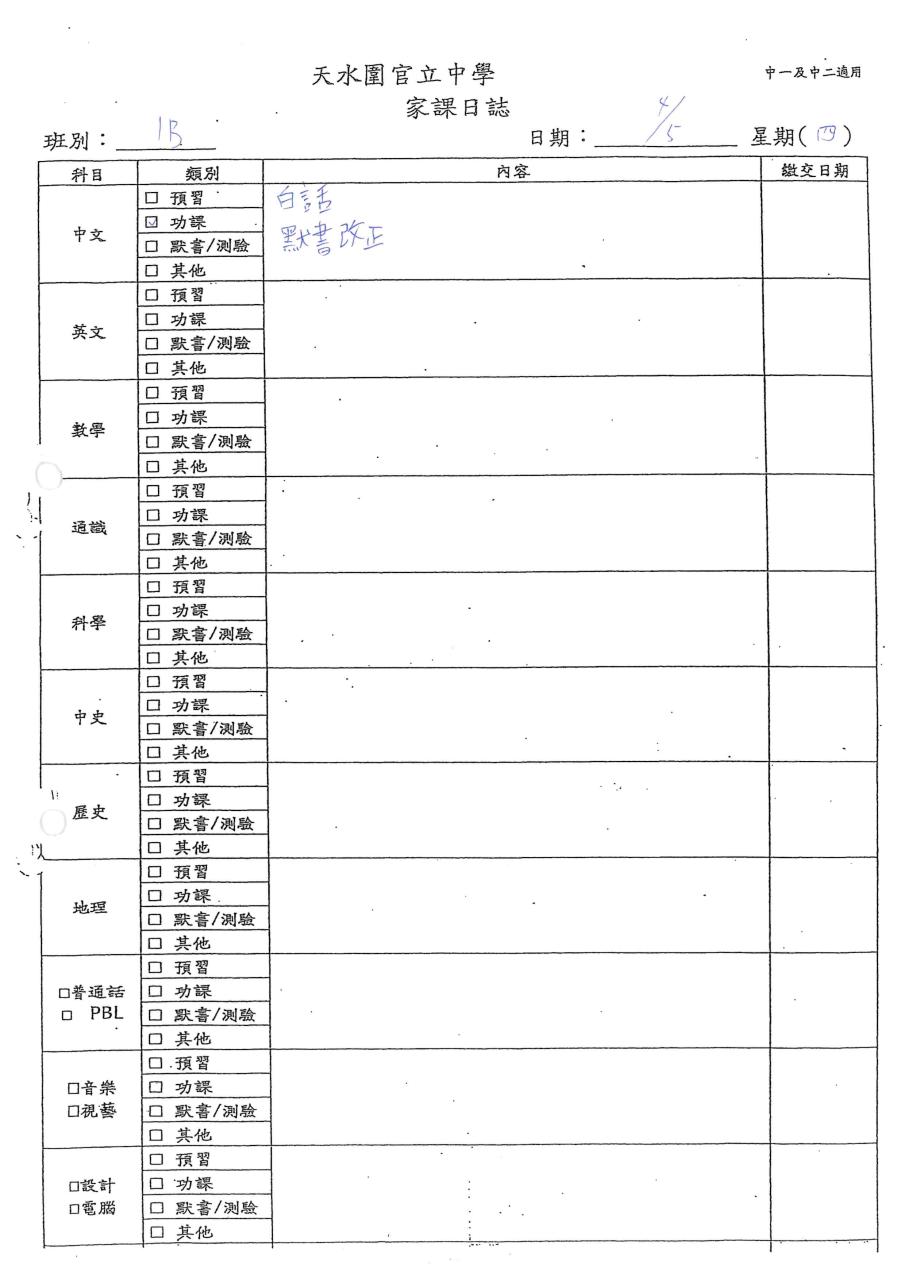 天水圍官立中學
中一及中二適用
家課日誌
班別：1B 日期：4/5 星期(四)
科目 類別 內容 繳交日期
中文
□ 預習 白話
☑ 功課 默書改正
□ 默書/測驗
□ 其他
英文
□ 預習
□ 功課
□ 默書/測驗
□ 其他
數學
□ 預習
□ 功課
□ 默書/測驗
□ 其他
通識
□ 預習
□ 功課
□ 默書/測驗
□ 其他
科學
□ 預習
□ 功課
□ 默書/測驗
□ 其他
中史
□ 預習
□ 功課
□ 默書/測驗
□ 其他
歷史
□ 預習
□ 功課
□ 默書/測驗
□ 其他
地理
□ 預習
□ 功課
□ 默書/測驗
□ 其他
□普通話
□ PBL
□ 預習
□ 功課
□ 默書/測驗
□ 其他
□音樂
□視藝
□ 預習
□ 功課
□ 默書/測驗
□ 其他
□設計
□電腦
□ 預習
□ 功課
□ 默書/測驗
□ 其他